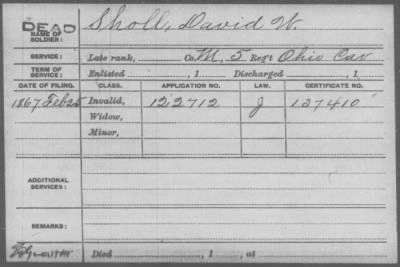 DEAD
NAME OF SOLDIER: Sholl, David W.
SERVICE: Late rank, Co. M, 5 Reg't Ohio Cav
TERM OF SERVICE: Enlisted , 1 Discharged , 1
DATE OF FILING. CLASS. APPLICATION NO. LAW. CERTIFICATE NO.
1867 Feb 25 Invalid, 122712 J 137410
Widow,
Minor,
ADDITIONAL SERVICES:
REMARKS:
Died , 1 , at